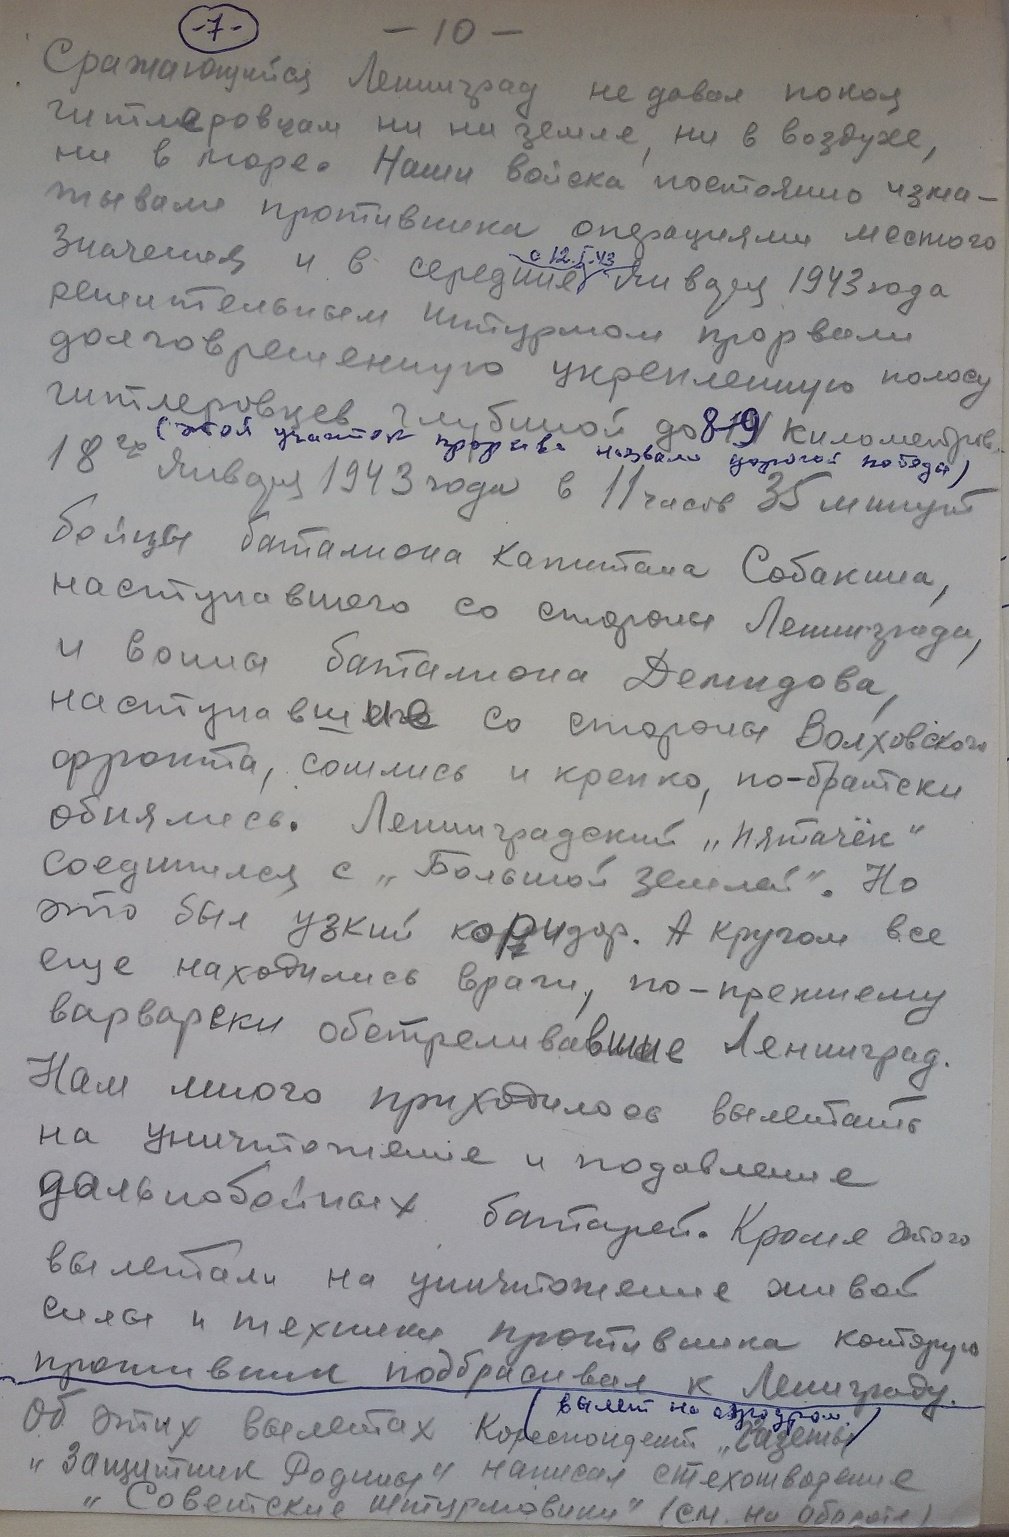 -7-
- 10 -
Сражающийся Ленинград не давал покоя
гитлеровцам ни на земле, ни в воздухе,
ни в море. Наши войска постоянно изма-
тывали противника операциями местного
с 12.I.43
значения и в середине января 1943 года
решительным штурмом прорвали
долговременную укрепленную полосу
гитлеровцев глубиной до 8-9 километров.
(этой участок прорыва назвали дорогой победы)
18го января 1943 года в 11 часов 35 минут
бойцы баталиона капитана Собакина,
наступавшего со стороны Ленинграда,
и воины баталиона Демидова,
наступавшие со стороны Волховского
фронта, сошлись и крепко, по-братски
обнялись. Ленинградский „пятачёк"
соединился с „Большой землей". Но
это был узкий коридор. А кругом все
еще находились враги, по-прежнему
варварски обстреливавшие Ленинград.
Нам много приходилось вылетать
на уничтожение и подавление
дальнобойных батарей. Кроме этого
вылетали на уничтожение живой
силы и техники противника которую
противник подбрасивал к Ленинграду.
(вылет на аэродром)
Об этих вылетах Кореспондент „Газеты
„Защитник Родины" написал стехотворение
„Советские штурмовики" (см. на обороте)